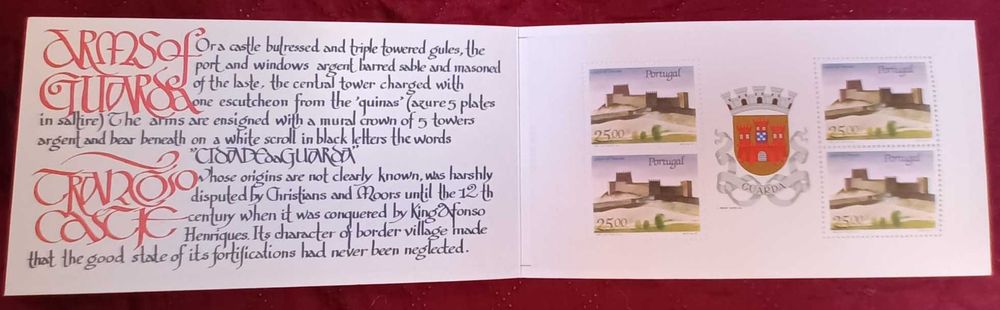 ARMS of GUARDA
Or a castle butressed and triple towered gules, the
port and windows argent barred sable and masoned
of the laste, the central tower charged with
one escutcheon from the "quinas" (azure 5 plates
in saltire) The arms are ensigned with a mural crown of 5 towers
argent and bear beneath on a white scroll in black letters the words
"CIDADE da GUARDA"
TRANCOSO CASTLE
Whose origins are not clearly known, was harshly
disputed by Christians and Moors until the 12 th
century when it was conquered by King Afonso
Henriques. Its character of border village made
that the good state of its fortifications had never been neglected.
Portugal
25.00
Portugal
25.00
GUARDA
Portugal
25.00
Portugal
25.00